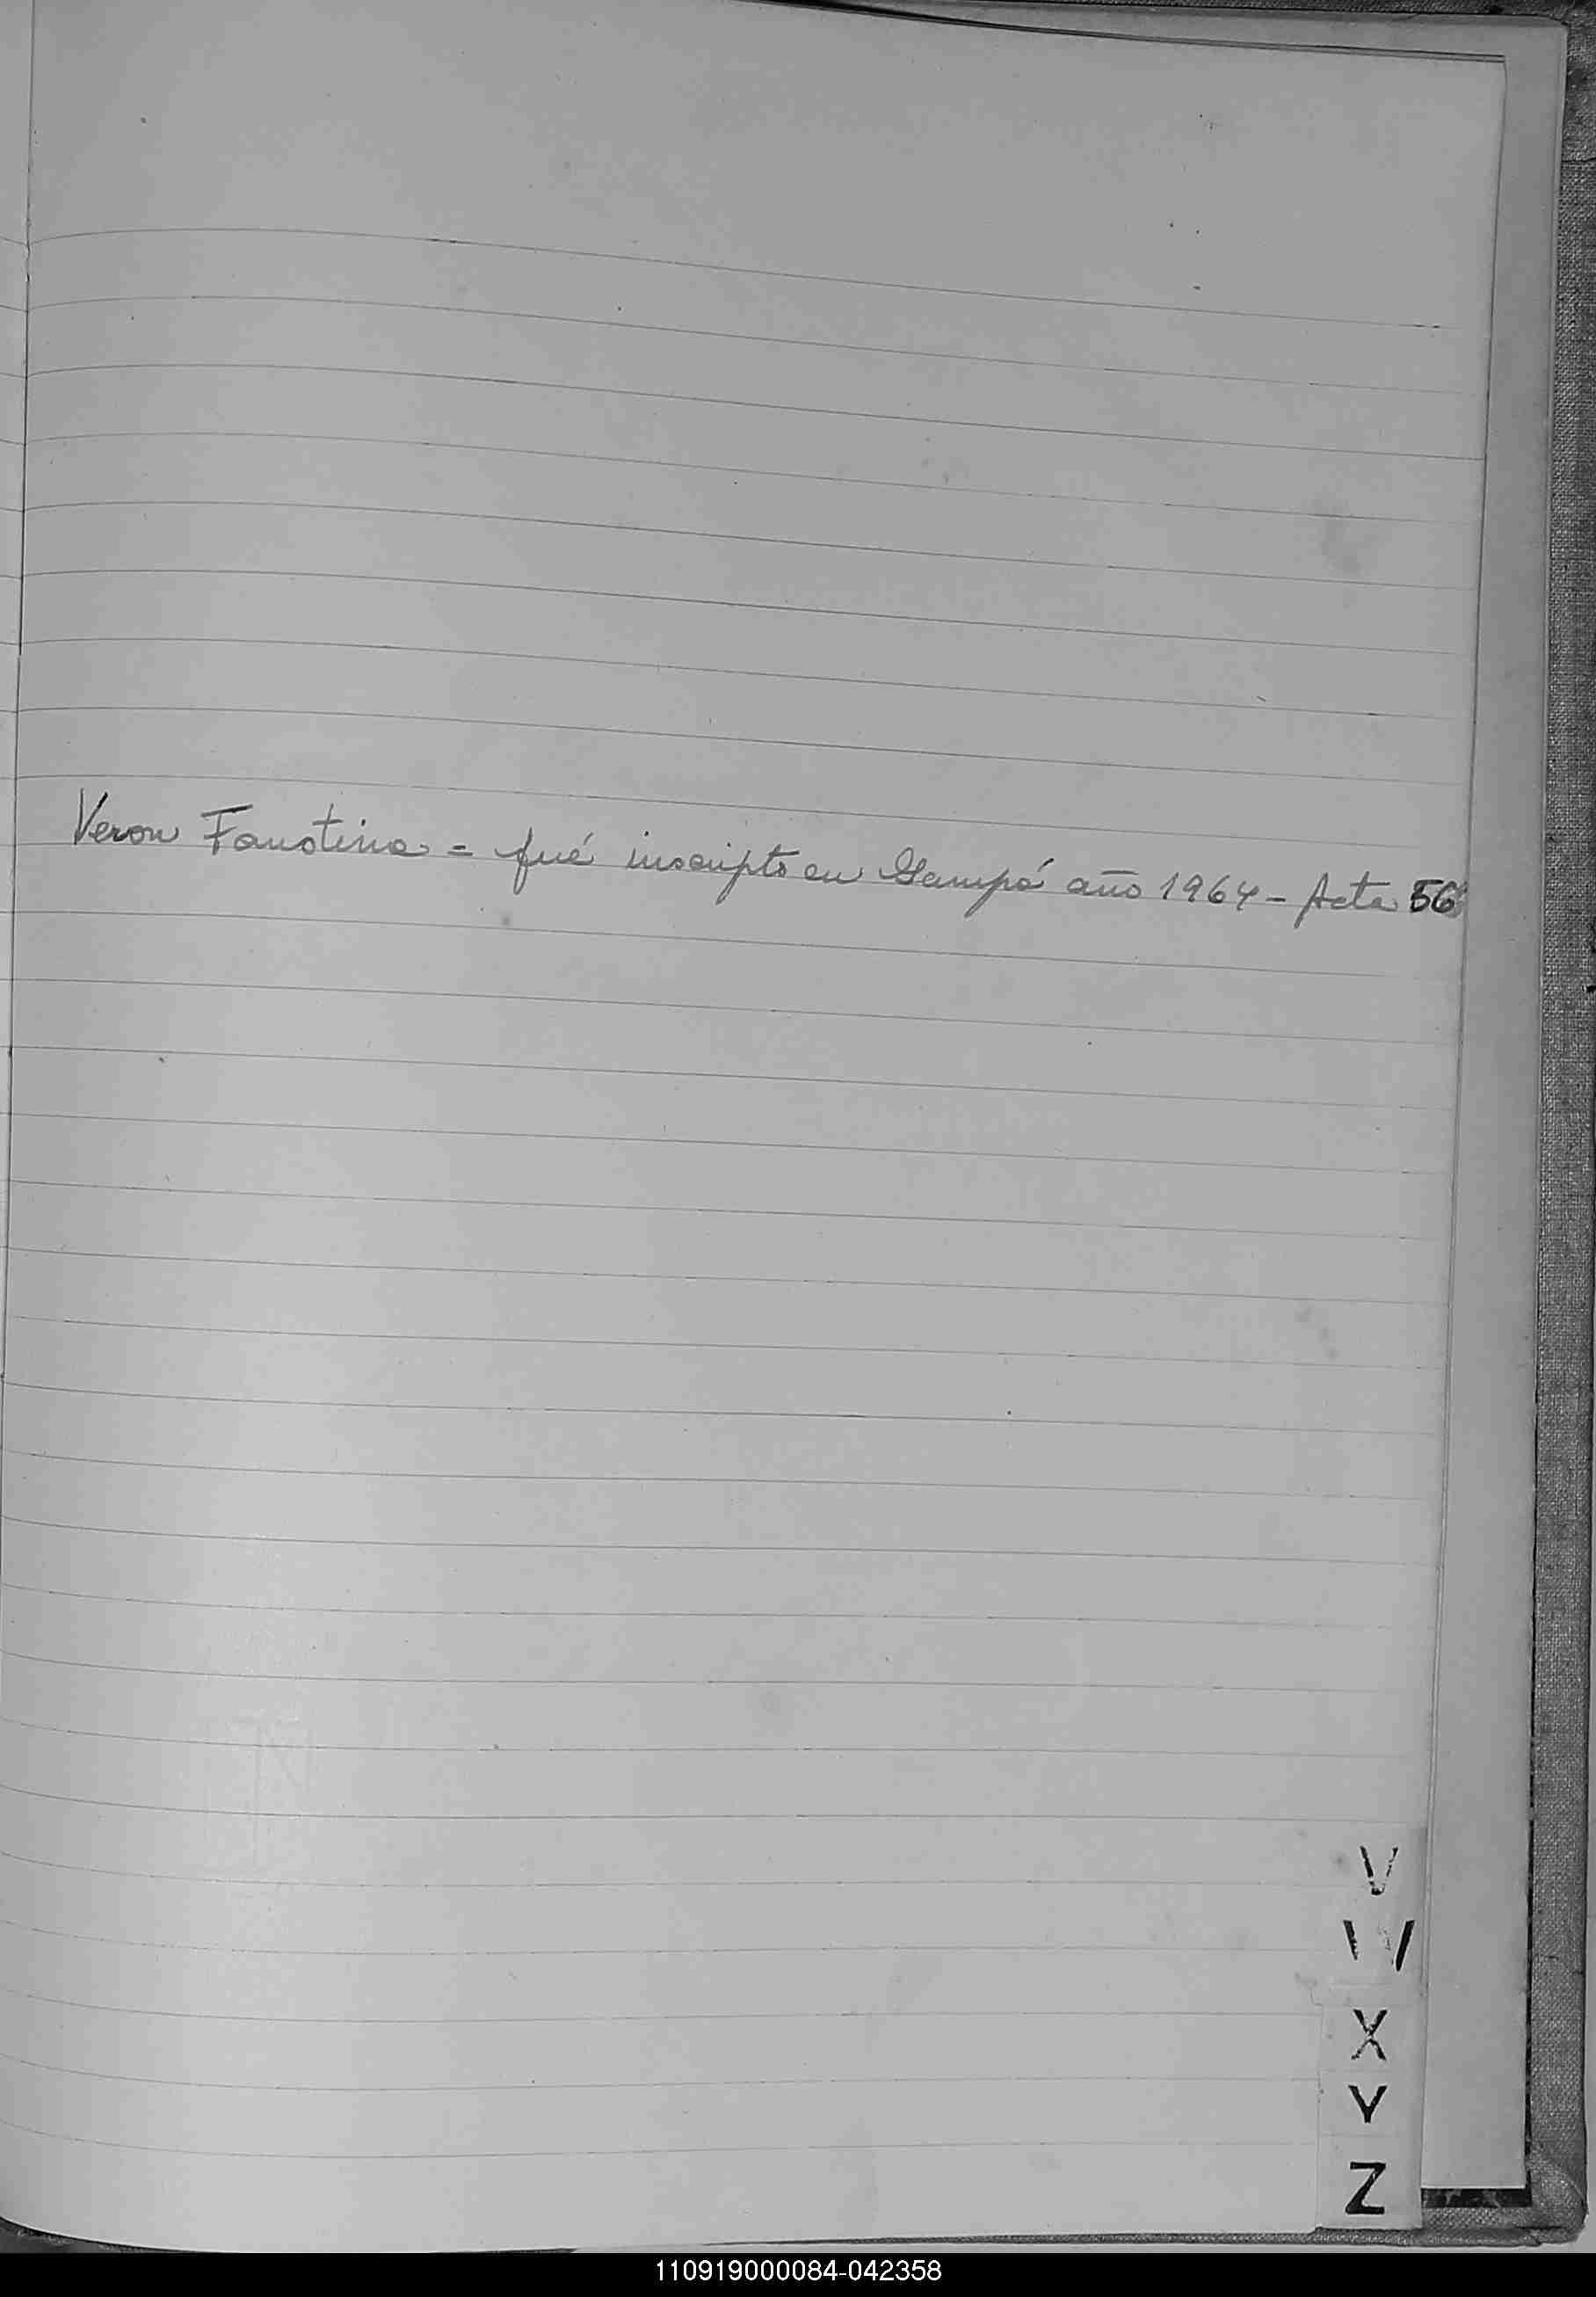 Veron Faustina = fué inscripto en Yampá año 1964 - Acta 56
V
W
X
Y
Z
110919000084-042358